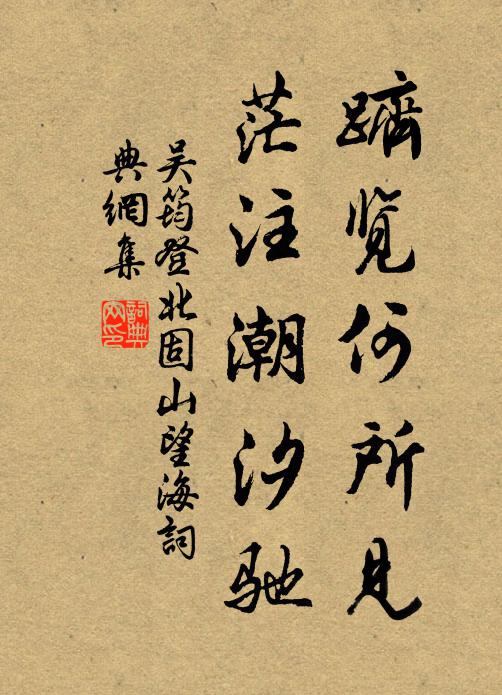 躋览何所见
茫注潮汐驰
吴筠登北固山望海詞
典網集
詞典
网印